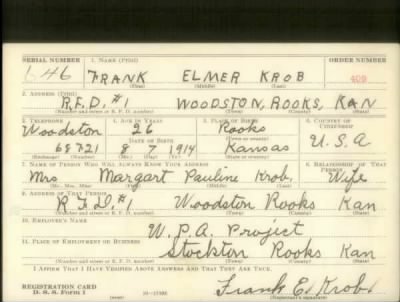 SERIAL NUMBER 1. NAME (Print) ORDER NUMBER
646 FRANK ELMER KROB 409
(First) (Middle) (Last)
2. ADDRESS (Print)
R.F.D. #1 WOODSTON, ROOKS, KAN
(Number and street or R. F. D. number) (Town) (County) (State)
3. TELEPHONE 4. AGE IN YEARS 5. PLACE OF BIRTH 6. COUNTRY OF CITIZENSHIP
Woodston 26 Rooks
DATE OF BIRTH
68F21 8 7 1914 Kansas U.S.A
(Exchange) (Number) (Mo.) (Day) (Yr.) (State or country)
7. NAME OF PERSON WHO WILL ALWAYS KNOW YOUR ADDRESS 8. RELATIONSHIP OF THAT PERSON
Mrs Margart Pauline Krob, Wife
(Mr., Mrs., Miss) (First) (Middle) (Last)
9. ADDRESS OF THAT PERSON
R.F.D. #1 Woodston Rooks Kan
(Number and street or R. F. D. number) (Town) (County) (State)
10. EMPLOYER'S NAME
W.P.A. Project
11. PLACE OF EMPLOYMENT OR BUSINESS
Stockton Rooks Kan
(Number and street or R. F. D. number) (Town) (County) (State)
I AFFIRM THAT I HAVE VERIFIED ABOVE ANSWERS AND THAT THEY ARE TRUE.
REGISTRATION CARD
D. S. S. Form 1 Frank E. Krob
(Registrant's signature)